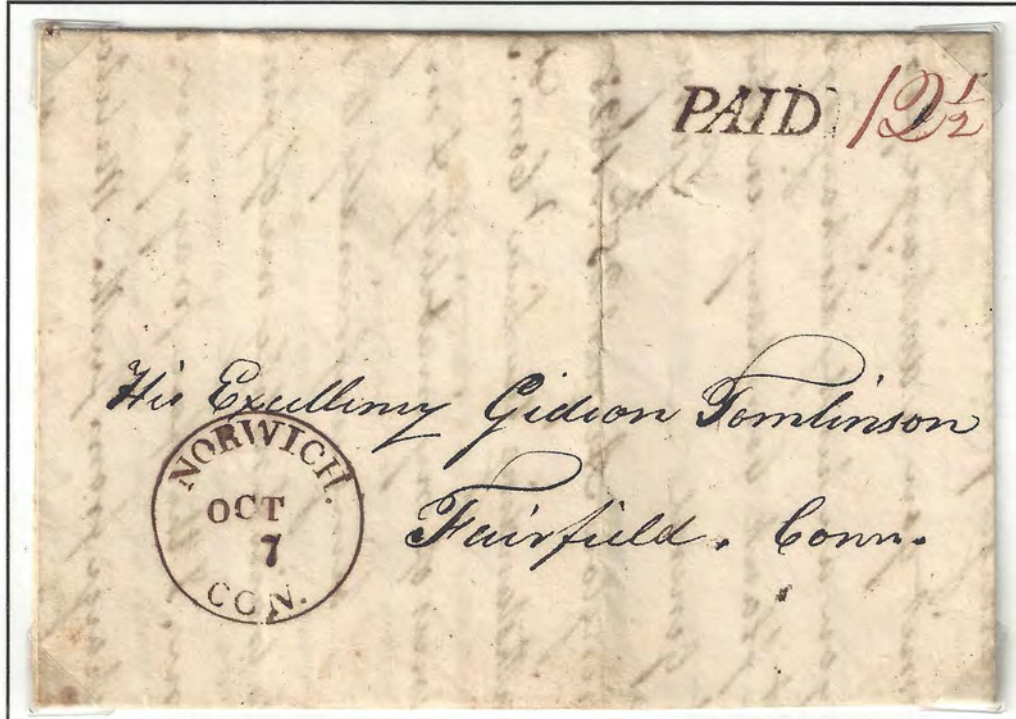 PAID 12½
His Excellency Gideon Tomlinson
Fairfield. Conn.
NORWICH.
OCT
7
CON.